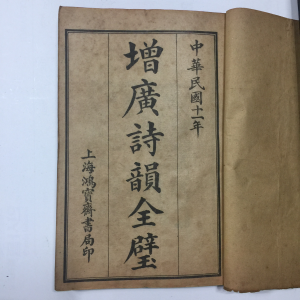 中華民國十一年
增廣詩韻全璧
上海鴻寶齋書局印